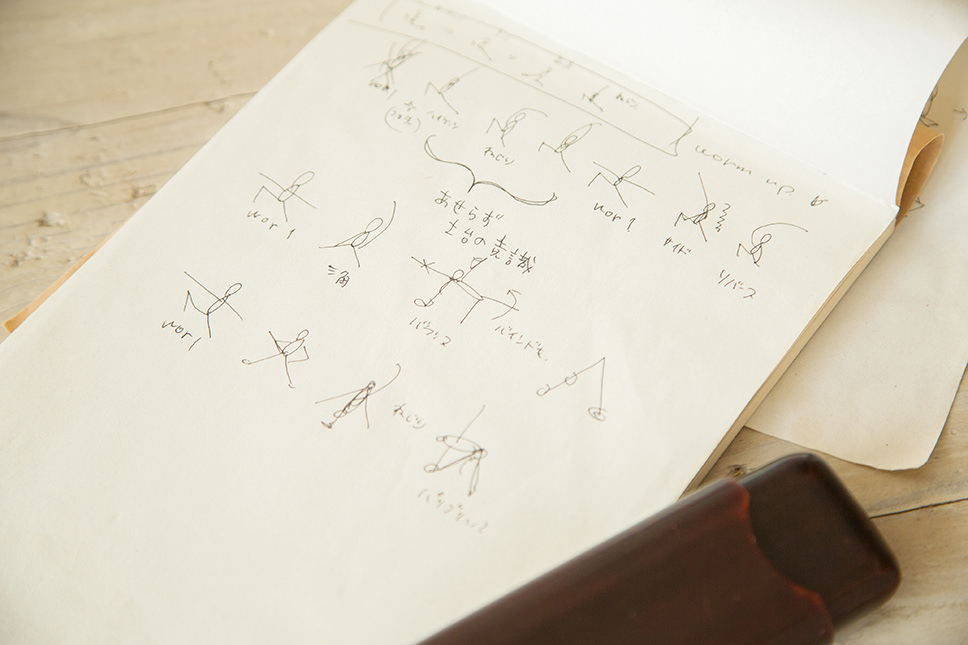 worm up.
wor 1
ハイランジ
ねじり
wor 1
サイド
リバース
あせらず
土台の意識
wor 1
三角
バランス
バインドも
wor 1
ねじり